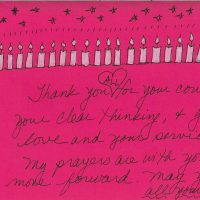 Thank you for your
your clear thinking, &
love and your
My prayers are with
move forward. May
all